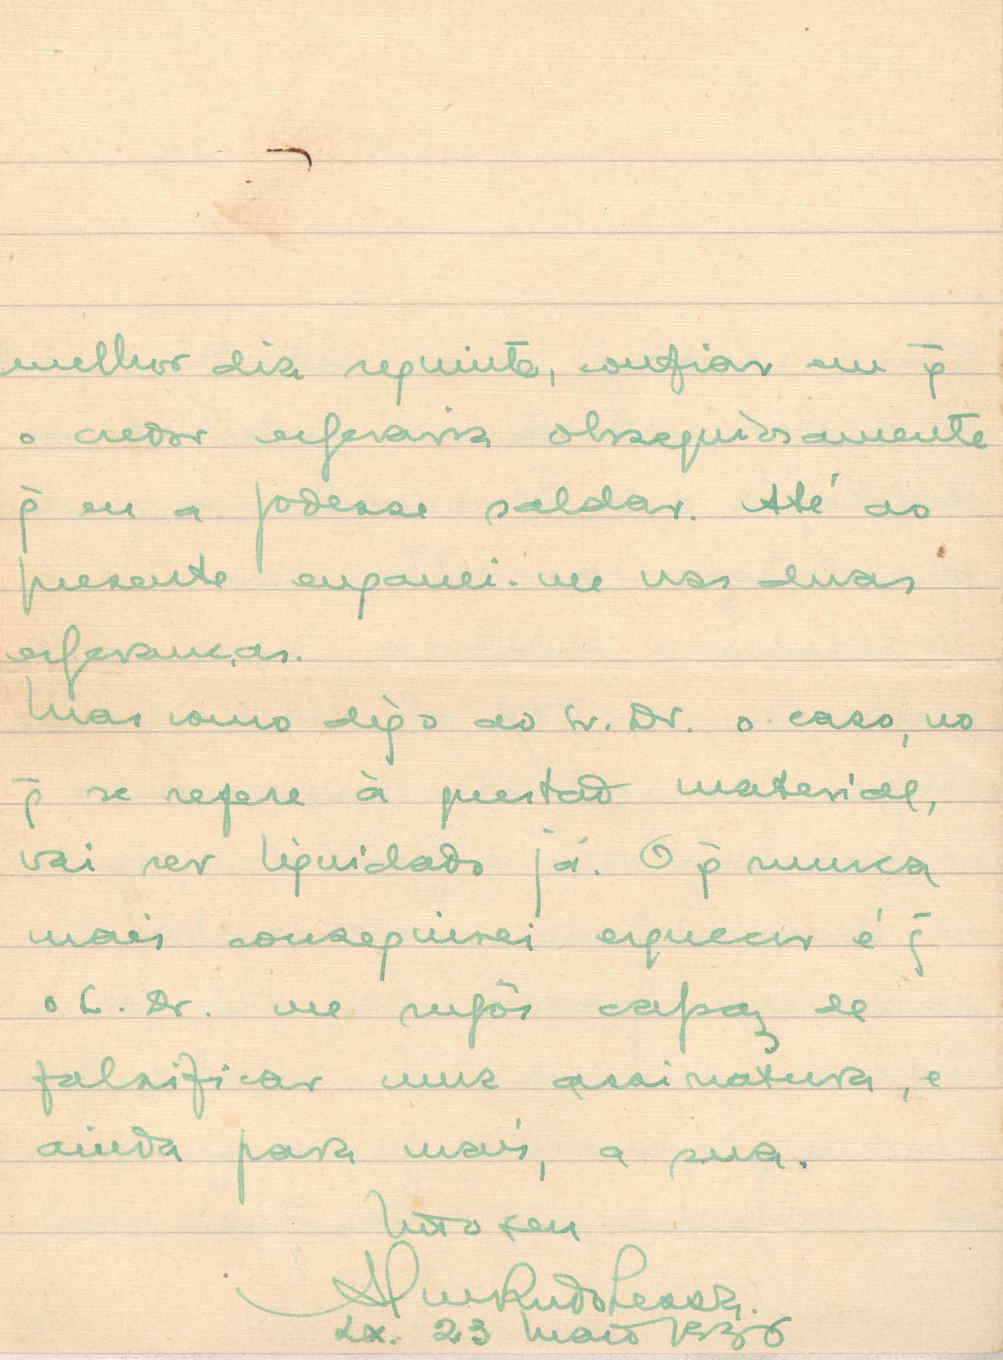 melhor dia seguinte, confiar em q̄
o credor esperaria obsequiosamente
q̄ eu a podesse saldar. Até ao
presente enganei-me nas duas
esperanças.
Mas como digo ao Sr. Dr. o caso, no
q̄ se refere à prestação material,
vai ser liquidado já. O q̄ nunca
mais conseguirei esquecer é q̄
o S. Dr. me supôs capaz de
falsificar uma assinatura, e
ainda para mais, a sua.
Mto seu
Lx. 23 Maio 1936